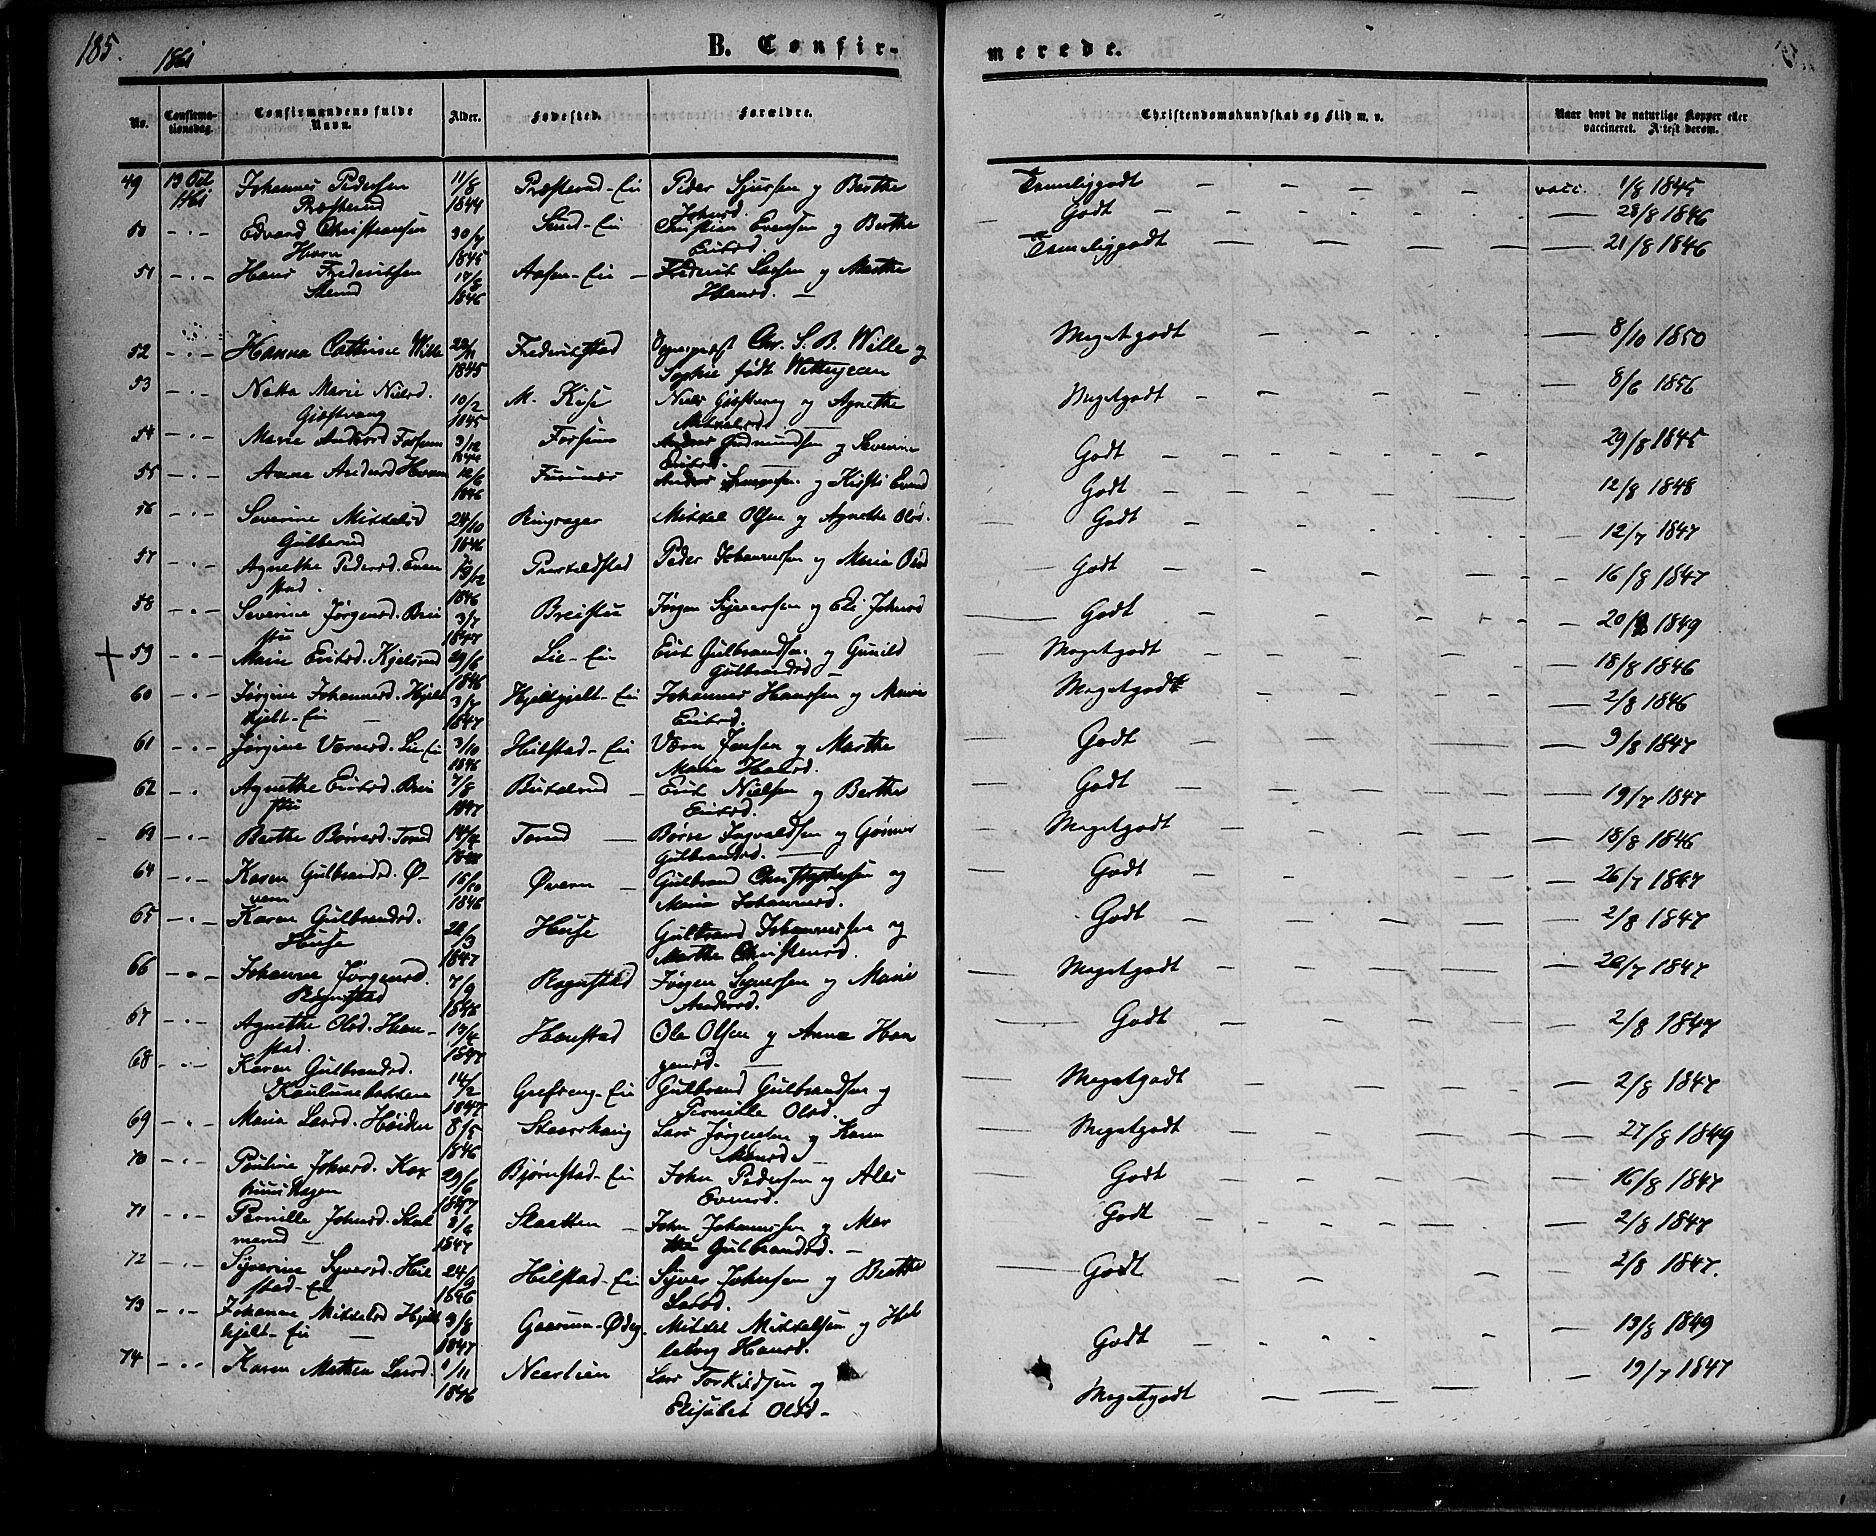 185.
1861
B. Confir-
merede.
No.
Confirma-
tionsdag.
Confirmandens fulde
Navn.
Alder.
Fødested.
Forældre.
Christendomskundskab og Flid m. v.
Naar havt de naturlige Kopper eller
vaccineret. Attest derom.
49 13 Oct 1861 Johannes Pedersen 11/8 1844 Præsterud-Eie Peder Sjursen og Berthe Johnsd. Temmeliggodt vacc. 1/8 1845
Præsterud
50 Edvard Christiansen 30/7 1845 Sund-Eie Christian Evensen og Berthe Ericsd. Godt 28/8 1846
51 Hans Frederiksen 17/8 1846 Aasen-Eie Frederik Larsen og Marthe Hansd. Temmeliggodt 21/8 1846
52 Hanna Cathrine Wille 22/11 1845 Frederikstad Sogneprest Chr. S. B. Wille og Sophie født Megetgodt 8/10 1850
53 Marie Nielsd. Gjæstvang 10/2 1845 M. Kise Niels Gjæstvang og Agnethe Mikkelsd. Megetgodt 8/6 1856
54 Marie Andersd Forsum 3/12 1844 Forsum Anders Gudmundsen og Severine Ericsd. Godt 29/8 1845
55 Anne Andersd 12/6 1846 Furunes Anders og Kirsti Evensd Godt 12/8 1848
56 Severine Mikkelsd Gulberud 24/10 1846 Ringsager Mikkel Olsen og Agnethe Olsd. Godt 12/7 1847
57 Agnethe Pedersd. Evenstad. 19/12 1846 Peder Johannessen og Maria Olsd Godt 16/8 1847
58 Severine Jørgensd. Breistu 3/7 1847 Breistue Jørgen Syversen og Eli Johnsd Godt 20/8 1849
59 Marie Ericsd. Kjelsrud 29/6 1846 Lie-Eie Erik Gulbrandsen og Gunild Gulbrandsd Megetgodt 18/8 1846
60 Jørgine Johannesd. Hjeltkjelt-Eie 3/7 1847 Hjeltkjelt-Eie Johannes Hansen og Marie Ericsd. Megetgodt 2/8 1846
61 Jørgine Værnsd. Lie-Eie 3/10 1846 Hilstad-Eie Værn Jensen og Marthe Maria Hansd. Godt 9/8 1847
62 Agnethe Ericsd. Breistu 7/8 1847 Butelerud Erik Nielsen og Berthe Ericsd. Godt 19/7 1847
63 Berthe Børresd. Torud 14/4 Torud Børre Ingvaldsen og Gulbrandsd. Megetgodt 18/8 1846
64 Karen Gulbrandsd. Øvern 15/10 1846 Øvern Gulbrand Christophersen og Maria Johannesd. Godt 26/7 1847
65 Karen Gulbrandsd. Huse 22/3 1847 Huse Gulbrand Johannessen og Marthe Christensd. Godt 2/8 1847
66 Johanne Jørgensd. Rognstad 7/9 1846 Rognstad Jørgen Syversen og Marie Andersd. Megetgodt 20/7 1847
67 Agnethe Olsd. Hanstad. 13/4 1847 Hanstad Ole Olsen og Anne Haagensd. Godt 2/8 1847
68 Karen Gulbrandsd. 14/2 1847 Grefseng-Eie Gulbrand Gulbrandsen og Pernille Olsd. Megetgodt 2/8 1847
69 Maria Larsd. Høiden 8/5 1846 Lars Jørgensen og Karen Megetgodt 27/8 1849
70 Pauline Johnsd. 29/6 1847 Bjørnstad-Eie John Pedersen og Ales Evensd. Godt 16/8 1847
71 Pernille Johnsd. 1847 Slaatten John Johannessen og Marthe Gulbrandsd. Godt 2/8 1847
72 Syverine Syversd. Hilstad-Eie 24/9 1846 Hilstad-Eie Syver Johnsen og Berthe Larsd. Godt 2/8 1847.
73 Johanne Mikkelsd Hjeltkjelt-Eie 3/8 1847 Mikkel Mikkelsen og Helleborg Hansd. Godt 13/8 1849
74 Karen Mathea Larsd. 1/11 1846 Neerlien Lars Torkildsen og Elisabet Olsd Megetgodt 19/7 1847